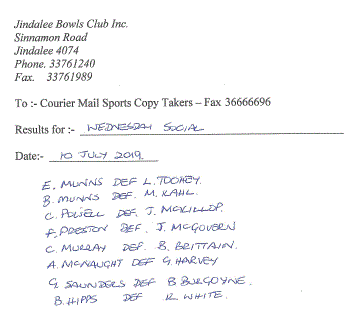 Jindalee Bowls Club Inc.
Sinnamon Road
Jindalee 4074
Phone. 33761240
Fax. 33761989
To :- Courier Mail Sports Copy Takers – Fax 36666696
Results for :- WEDNESDAY SOCIAL
Date:- 10 JULY 2019.
E. MUNNS DEF L. TOOHEY.
B. MUNNS DEF. M. KAHL.
C. POWELL DEF. J. McKILLOP.
F. PRESTON DEF. J. McGOVERN
C. MURRAY DEF. B. BRITTAIN.
A. McNAUGHT DEF G. HARVEY
G. SAUNDERS DEF B BURGOYNE.
B. HIPPS DEF R. WHITE.